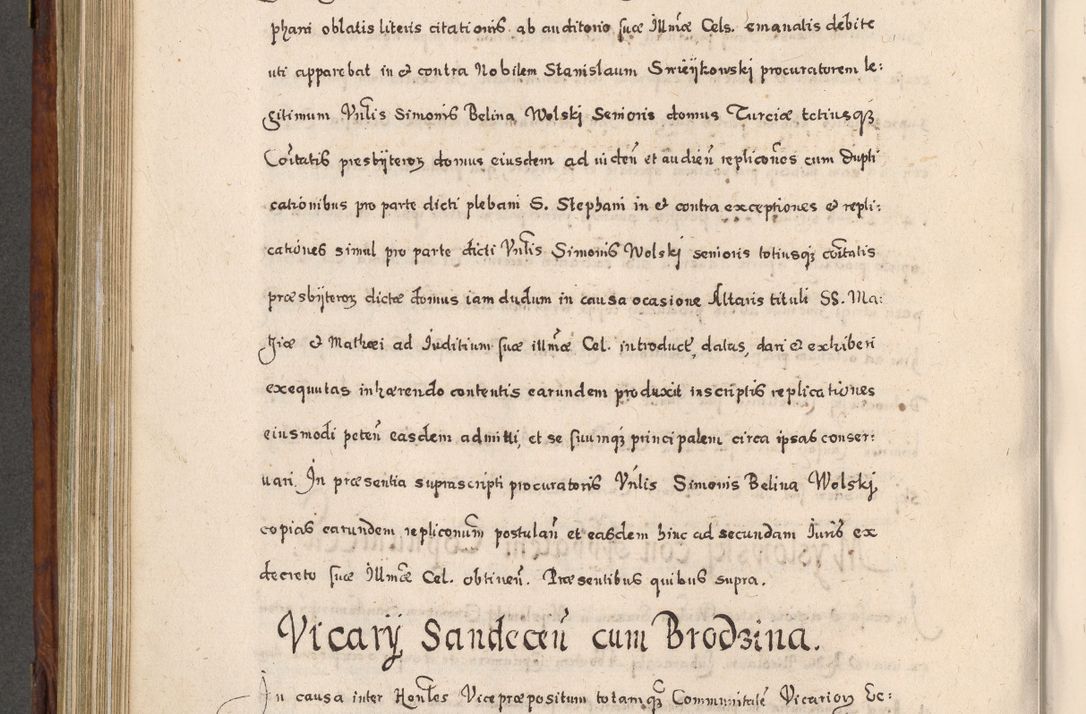 phani oblatis literis citationis ab auditorio suæ Illmæ Cels. emanatis debite
uti apparebat in et contra Nobilem Stanislaum Swieÿkowski procuratorem le:
gitimum Vnlis Simonis Belina Wolskj Senioris domus Turciæ totiusqȝ
Coitatis presbÿteroꝝ domus eiusdem ad viden̄ et audien̄ replicoes cum dupli
cationibus pro parte dicti plebani S. Stephani in et contra exceptiones et repli:
cationes simul pro parte dicti Vnlis Simonis Wolskj senioris totiusqȝ coitatis
præsbÿteroꝝ dictæ domus iam dudum in causa ocasione Altaris tituli SS. Ma:
giæ et Mathæi ad Iuditium suæ illmæ Cel. introduct, datas, dari et exhiberi
exequutas inhærendo contentis earundem produxit inscriptis replicationes
eiusmodi peten̄ easdem admitti, et se suumqȝ principalem circa ipsas conser:
uari. In præsentia suprascripti procuratoris Vnlis Simonis Belina Wolskj,
copias earundem repliconum postulan̄ et easdem hinc ad secundam Iuris ex
decreto suæ Illmæ Cel. obtinen̄. Præsentibus quibus supra.
Vicarij Sandecen̄ cum Brodzina.
In causa inter Honbles Vicepræpositum totamqȝ Communitatē Vicarioꝝ Ec: